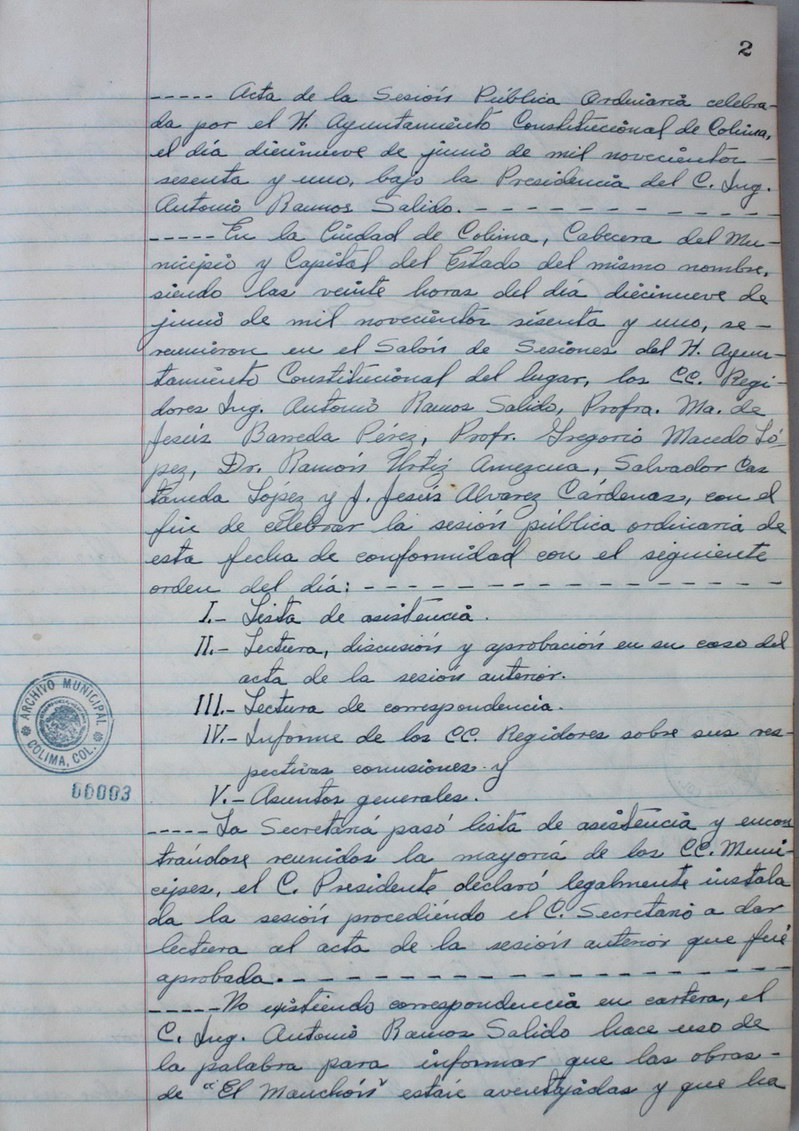 2
----- Acta de la Sesión Pública Ordinaria celebra-
da por el H. Ayuntamiento Constitucional de Colima,
el día diecinueve de junio de mil novecientos -
sesenta y uno, bajo la Presidencia del C. Ing.
Antonio Ramos Salido. - - - - - - - - - - -
----- En la Ciudad de Colima, Cabecera del Mu-
nicipio y Capital del Estado del mismo nombre,
siendo las veinte horas del día diecinueve de
junio de mil novecientos sesenta y uno, se -
reunieron en el Salón de Sesiones del H. Ayun-
tamiento Constitucional del lugar, los CC. Regi-
dores Ing. Antonio Ramos Salido, Profra. Ma. de
Jesús Barreda Pérez, Profr. Gregorio Macedo Ló-
pez, Dr. Ramón Urtiz Amezcua, Salvador Cas
tañeda López y J. Jesús Alvarez Cárdenas, con el
fin de celebrar la sesión pública ordinaria de
esta fecha de conformidad con el siguiente
orden del día: - - - - - - - - - - - - - - -
I.- Lista de asistencia.
II.- Lectura, discusión y aprobación en su caso del
acta de la sesión anterior.
III.- Lectura de correspondencia.
IV.- Informe de los CC. Regidores sobre sus res-
pectivas comisiones y
V.- Asuntos generales.
ARCHIVO MUNICIPAL
COLIMA, COL.
00003
----- La Secretaría pasó lista de asistencia y encon
trándose reunidos la mayoría de los CC. Muni-
cipes, el C. Presidente declaró legalmente instala
da la sesión procediendo el C. Secretario a dar
lectura al acta de la sesión anterior que fué
aprobada. - - - - - - - - - - - - - - - - -
----- No existiendo correspondencia en cartera, el
C. Ing. Antonio Ramos Salido hace uso de
la palabra para informar que las obras -
de "El Manchón" están aventajadas y que ha